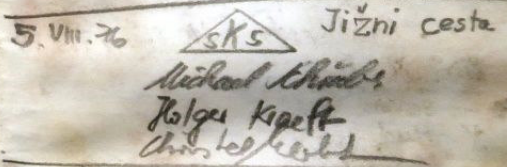 5. VIII. 76 SKS Jižni cesta
Michael
Holger Kraeft
Christel